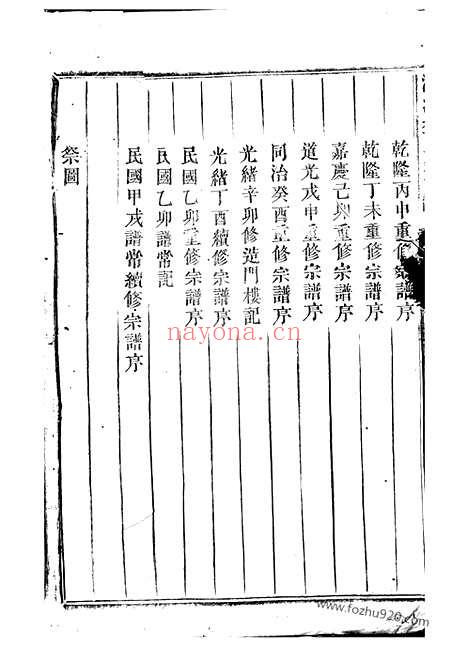 乾隆丙申重修宗譜序
乾隆丁未重修宗譜序
嘉慶己卯重修宗譜序
道光戊申重修宗譜序
同治癸酉重修宗譜序
光緒辛卯修造門樓記
光緒丁酉續修宗譜序
民國乙卯重修宗譜序
民國乙卯譜常記
民國甲戌譜常續修宗譜序
祭圖
nayona.cn
www.fozhu920.com